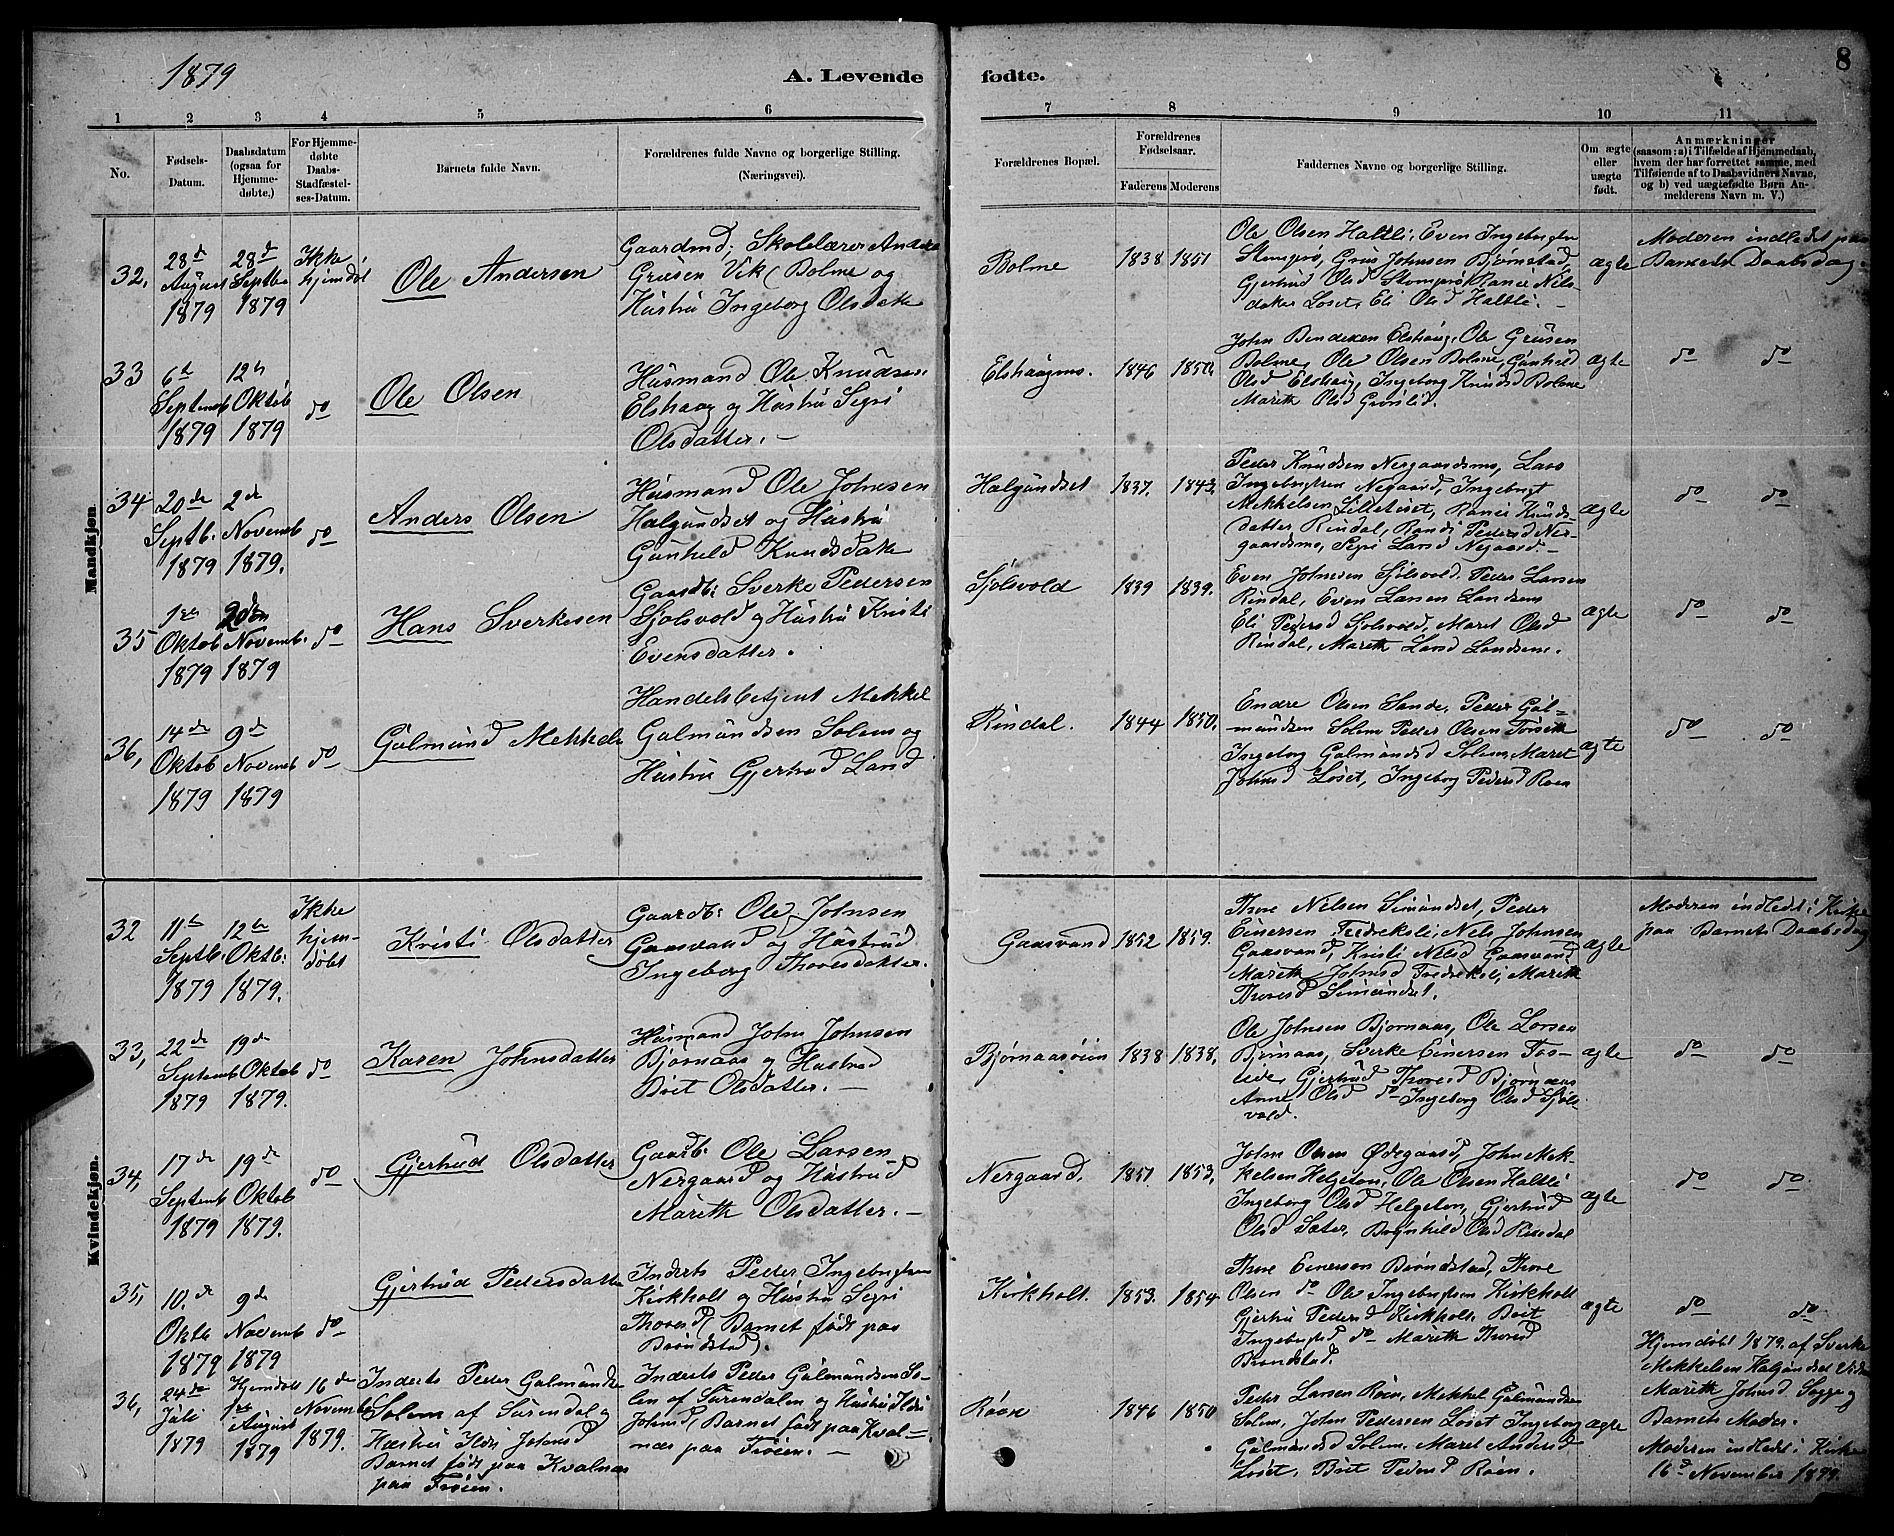 1879
A. Levende fødte.
8
1 2 3 4 5 6 7 8 9 10 11
No.
Fødsels-Datum.
Daabsdatum (ogsaa for Hjemmedøbte.)
For Hjemmedøbte Daabs-Stadfæstelses-Datum.
Barnets fulde Navn.
Forældrenes fulde Navne og borgerlige Stilling.
(Næringsvei).
Forældrenes Bopæl.
Forældrenes Fødselsaar.
Faderens Moderens
Faddernes Navne og borgerlige Stilling.
Om ægte eller uægte født.
Anmærkninger
(saasom: a) i Tilfælde af Hjemmedaab,
hvem der har forrettet samme, med
Tilføiende af to Daabsvidners Navne,
og b) ved uægtefødte Børn An-
melderens Navn m. V.)
Mandkjøn.
32, 28de August 1879 28de Septb 1879 Ikke hjemdøbt
Ole Andersen
Gaardmd; Skolelærer Anders
Gruesen Vik (Bolme og
Hustru Ingeborg Olsdatte
Bolme 1838 1851
Ole Olsen Haltli; Even Ingebrigtsen
Stomprø, Grus Johnsen Bjørnstad,
Gjertrud Olsd Stomprø, Ranei Nils-
datter Løset, Eli Olsd Haltli. -
ægte
Moderen indledet paa
Barnets Daabsdag.
33 6te Septemb 1879 12te Oktob 1879 do
Ole Olsen
Husmand Ole Knudsen
Elshaug og Hustru Segri
Olsdatter. -
Elshaugms. 1846 1850.
John Bendixen Elshaug, Ole Gruesen
Bolme, Ole Olsen Bolme, Gunhild
Olsd Elshaug, Ingeborg Knudsd Bolme
Marith Olsd Grønlid.
ægte do do
34 20de Septb. 1879 2de Novemb 1879. do
Anders Olsen
Husmand Ole Johnsen
Halgundset og Hustru
Gunhild Knudsdatte
Halgundset 1837. 1843.
Peder Knudsen Nergaardsmo, Lars
Ingebrigtsen Negaard, Ingebrigt
Mekkelsen Lilleløset, Ranei Knuds-
datter Rindal, Randi Pedersd Ner-
gaardsmo, Segri Larsd Negaard. -
ægte do do
35 1ste Oktob 1879 2den Novemb. 1879 do
Hans Sverkesen
Gaardb: Sverke Pedersen
Sjølsvold og Hustru Kristi
Evensdatter.
Sjølsvold 1839 1839.
Even Johnesen Sjølsvold, Peder Larsen
Rindal, Even Larsen Landsem
Eli Pedersd Sjølsvold, Maret Olsd
Rindal, Marith Larsd Landsem.
ægte do do
36, 14de Oktob 1879 9de Novemb 1879 do
Gulmund Mekkels
Handelsbetjent Mekkel
Galmundsen Solem og
Hustru Gjertrud Larsd
Rindal. 1844 1850.
Endre Olsen Sande, Peder Gul-
mundsen Solem Peder Olsen Torseth
Ingeborg Galmundsd Solem, Maret
Johnsd Løset, Ingeborg Pedersd Røen
ægte do do
Kvindekjøn.
32 11te Septb 1879 12te Oktb: 1879. Ikke hjemdøbt
Kristi Olsdatter
Gaardb: Ole Johnsen
Gaasvand og Hustrud
Ingeborg Thoresdatter.
Gaasvand 1852 1859.
Thore Nilsen Simundset, Peder
Einersen Fredrekeli, Nels Johnsen
Gaasvand, Kristi Nilsd Gaasvand
Marith Johnsd Fredrekeli, Marith
Thoresd Simundset.
ægte
Moderen indledet i Kirke
paa Barnets Daabsdag
33, 22de Septemb 1879 19de Oktob 1879. do
Karen Johnsdatter
Husmand John Johnsen
Bjørnaas og Hustrud
Brit Olsdatter. -
Bjørnaasøien 1838 1838,
Ole Johnsen Bjørnaas, Ole Larsen
Bjørnaas, Sverke Einersen Tos-
eide, Gjertrud Thoresd Bjørnaas
Anne Olsd do Ingeborg Olsd Sjøls-
vold.
ægte do do
34, 17de Septemb 1879 19de Oktob 1879. do
Gjertrud Olsdatter
Gaardb: Ole Larsen
Nergaard og Hustrud
Marith Olsdatter. -
Nergaard. 1851 1853,
John Olsen Ødegaard, John Mek-
kelsen Helgeton, Ole Olsen Haltli
Ingeborg Olsd Helgeton, Gjertrud
Olsd Sæter, Brynhild Olsd Rindal
ægte do do
35, 10.de Oktb 1879 9de Novemb 1879 do
Gjertrud Pedersdatte
Inderts Peder Ingebrigtsen
Kirkholt og Hustru Segri
Thoresd (Barnet født paa
Brøndstad).
Kirkholt. 1853. 1854
Thore Einersen Brøndstad, Thore
Olsen do Ole Ingebrigtsen Kirkholt
Gjertru Pedersd Kirkholt, Brit
Ingebrigtsd do Marith Thoresd
Brøndstad.
ægte do do
36, 24de Juli 1879 Hjemdøbt 1ste August 1879 16de Novemb 1879.
Inderts Peder Galmundse
Solem af Surendal og
Hustru Ildri Johnsd
Barnet født paa Kvalnæs
paa Frøien.
Inderts Peder Gulmundsen So-
lem af Surendalen og Hustru Ildri
Johnsd (Barnet født paa Kval=
næs paa Frøien. -
Røen 1846 1850
Peder Larsen Røen, Mekkel Gulmundsen
Solem, John Pedersen Løset Ingeborg
Gulmundsd Solem. Maret Andersd
Løset. Brit Pedersd Røen.
ægte
Hjemdøbt 1879. af Sverke
Mekkelsen Halgundset Vidne
Marith Johnsd Sogge og
Barnets Moder.
Moderen indledet i Kirke
16de November 1879.